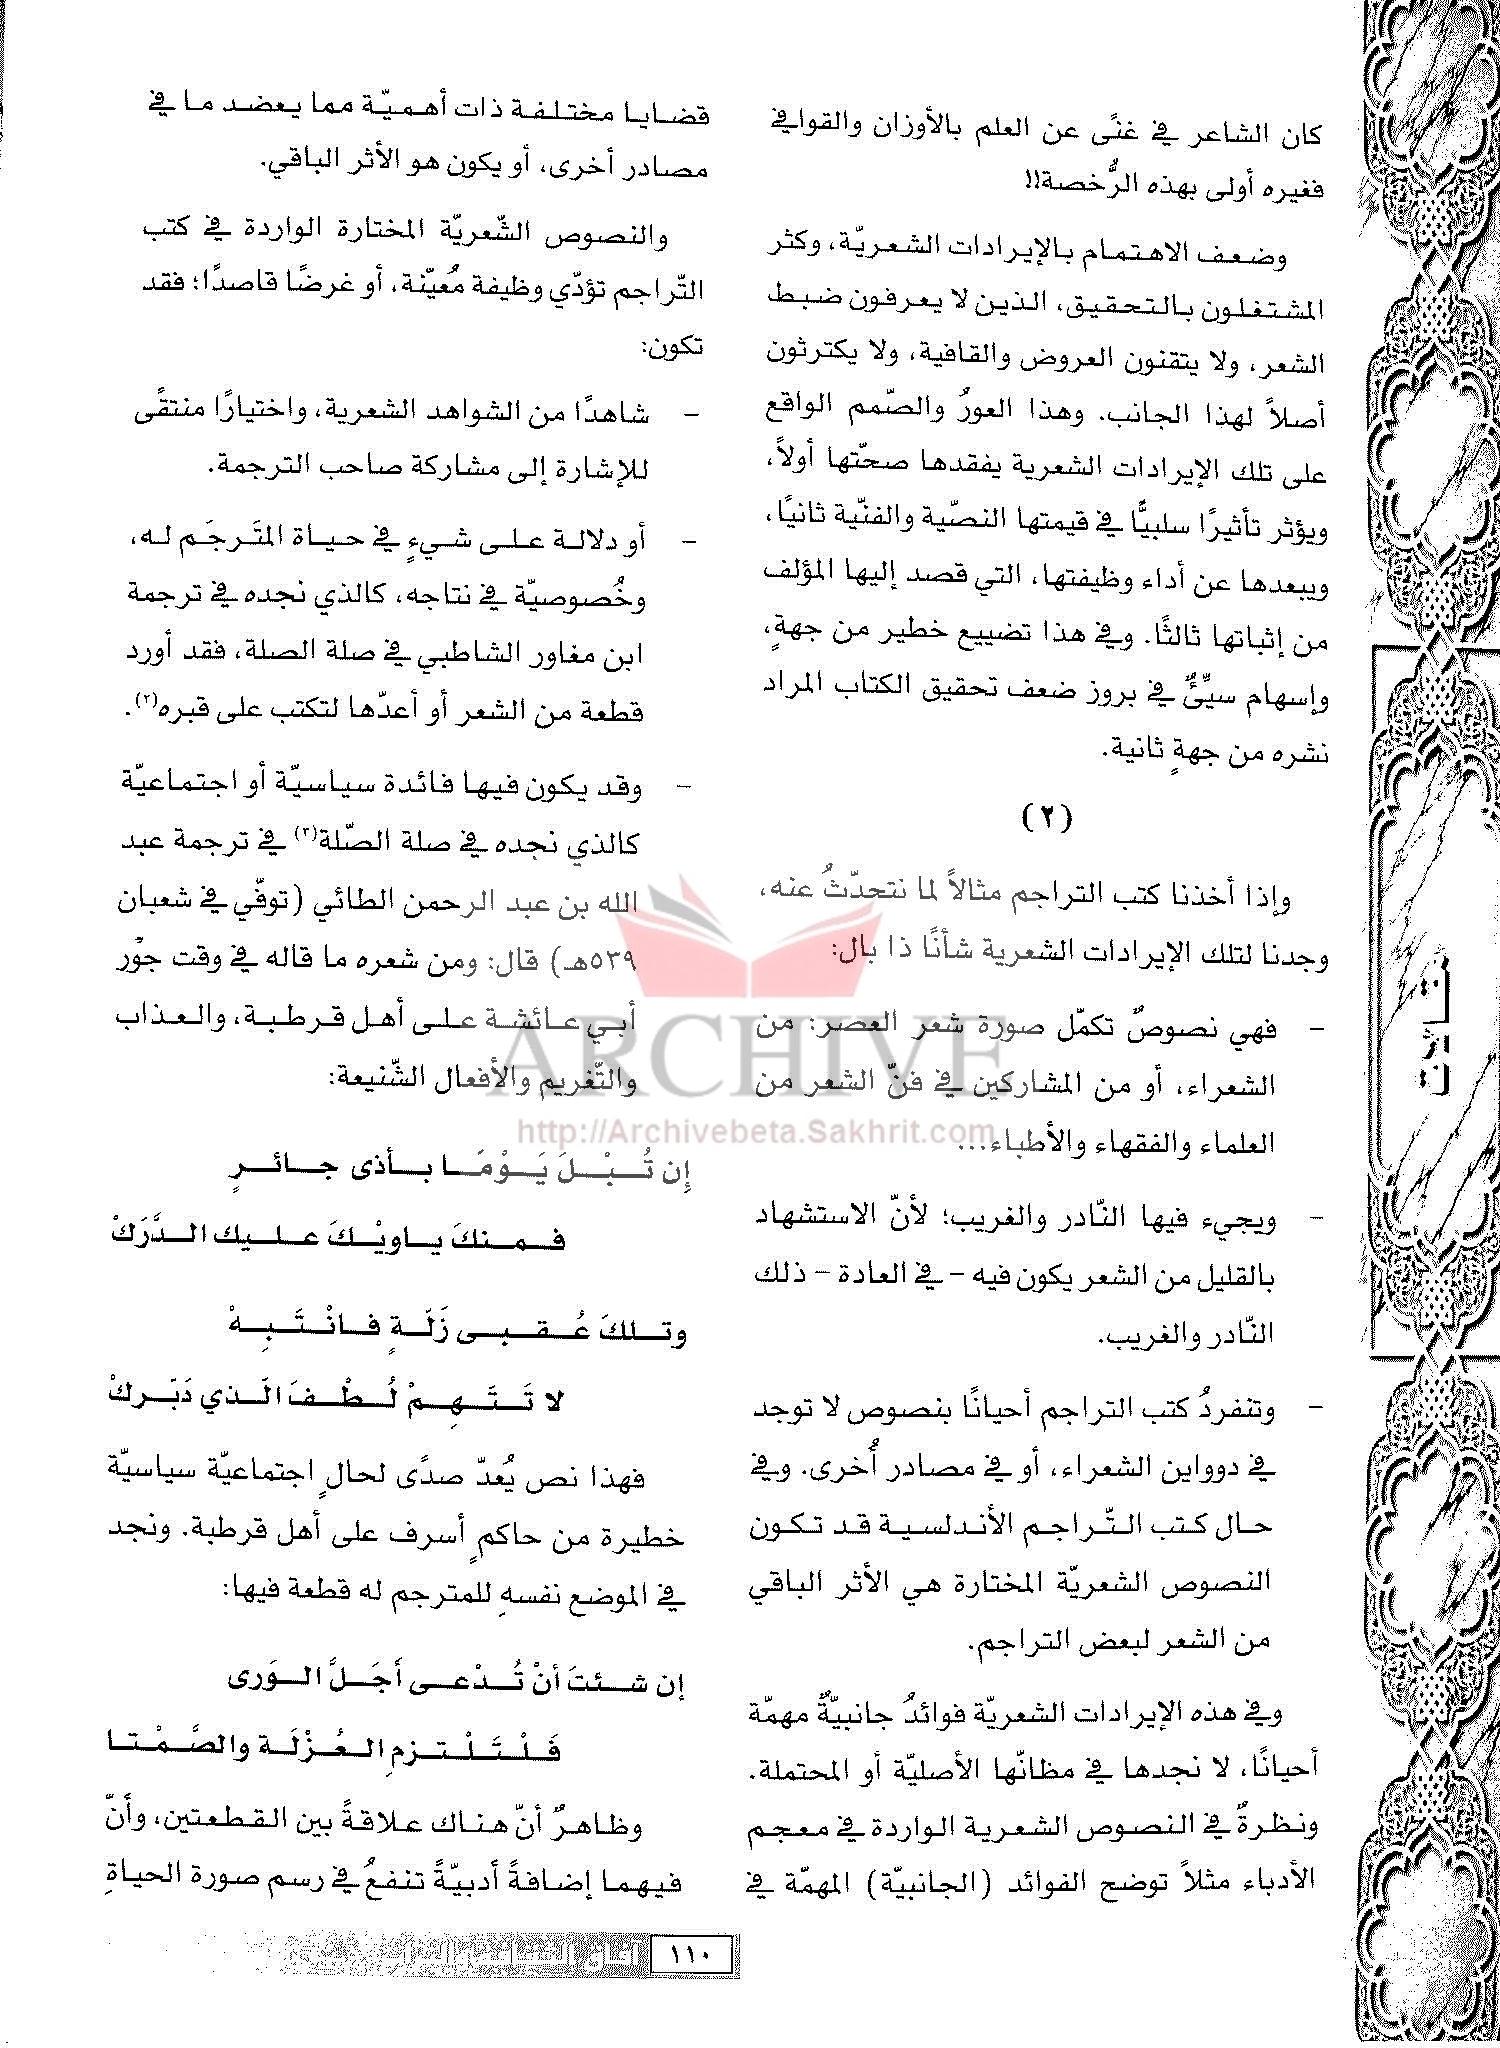 كان الشاعر في غنًى عن العلم بالأوزان والقوافي
فغيره أولى بهذه الرُّخصة!!
وضعف الاهتمام بالإيرادات الشعريّة، وكثر
المشتغلون بالتحقيق، الذين لا يعرفون ضبط
الشعر، ولا يتقنون العروض والقافية، ولا يكترثون
أصلاً لهذا الجانب. وهذا العورُ والصّمم الواقع
على تلك الإيرادات الشعرية يفقدها صحّتها أولاً،
ويؤثر تأثيرًا سلبيًّا في قيمتها النصّية والفنّية ثانيًا،
ويبعدها عن أداء وظيفتها، التي قصد إليها المؤلف
من إثباتها ثالثًا. وفي هذا تضييع خطير من جهةٍ،
وإسهام سيّئٌ في بروز ضعف تحقيق الكتاب المراد
نشره من جهةٍ ثانية.
(٢)
وإذا أخذنا كتب التراجم مثالاً لما نتحدّثُ عنه،
وجدنا لتلك الإيرادات الشعرية شأنًا ذا بال:
- فهي نصوصٌ تكمّل صورة شعر العصر: من
الشعراء، أو من المشاركين في فنّ الشعر من
العلماء والفقهاء والأطباء...
- ويجيء فيها النّادر والغريب؛ لأنّ الاستشهاد
بالقليل من الشعر يكون فيه - في العادة - ذلك
النّادر والغريب.
- وتنفردُ كتب التراجم أحيانًا بنصوص لا توجد
في دوواين الشعراء، أو في مصادر أُخرى. وفي
حال كتب التّراجم الأندلسية قد تكون
النصوص الشعريّة المختارة هي الأثر الباقي
من الشعر لبعض التراجم.
وفي هذه الإيرادات الشعريّة فوائدُ جانبيّةٌ مهمّة
أحيانًا، لا نجدها في مظانّها الأصليّة أو المحتملة.
ونظرةٌ في النصوص الشعرية الواردة في معجم
الأدباء مثلاً توضح الفوائد (الجانبيّة) المهمّة في
قضايا مختلفة ذات أهميّة مما يعضد ما في
مصادر أخرى، أو يكون هو الأثر الباقي.
والنصوص الشّعريّة المختارة الواردة في كتب
التّراجم تؤدّي وظيفة مُعيّنة، أو غرضًا قاصدًا؛ فقد
تكون:
- شاهدًا من الشواهد الشعرية، واختيارًا منتقًى
للإشارة إلى مشاركة صاحب الترجمة.
- أو دلالة على شيءٍ في حياة المتَرجَم له،
وخُصوصيّة في نتاجه، كالذي نجده في ترجمة
ابن مغاور الشاطبي في صلة الصلة، فقد أورد
قطعة من الشعر أو أعدّها لتكتب على قبره(٢).
- وقد يكون فيها فائدة سياسيّة أو اجتماعيّة
كالذي نجده في صلة الصّلة(٣) في ترجمة عبد
الله بن عبد الرحمن الطائي (توفّي في شعبان
٥٣٩هـ) قال: ومن شعره ما قاله في وقت جوْر
أبي عائشة على أهل قرطبة، والعذاب
والتّغريم والأفعال الشّنيعة:
إن تُبْلَ يَوْمًا بأذى جائرٍ
فمنكَ ياويْكَ عليك الدَّرَكْ
وتلكَ عُقبى زَلّةٍ فانْتَبِهْ
لا تَتَهِمْ لُطْفَ الَذي دَبّركْ
فهذا نص يُعدّ صدًى لحالٍ اجتماعيّة سياسيّة
خطيرة من حاكمٍ أسرف على أهل قرطبة. ونجد
في الموضع نفسهِ للمترجم له قطعة فيها:
إن شئتَ أنْ تُدْعى أَجَلَّ الوَرى
فَلْتَلْتزمِ العُزْلَة والصَّمْتا
وظاهرٌ أنّ هناك علاقةً بين القطعتين، وأنّ
فيهما إضافةً أدبيّةً تنفعُ في رسم صورة الحياةِ
ARCHIVE
http://Archivebeta.Sakhrit.com
١١٠